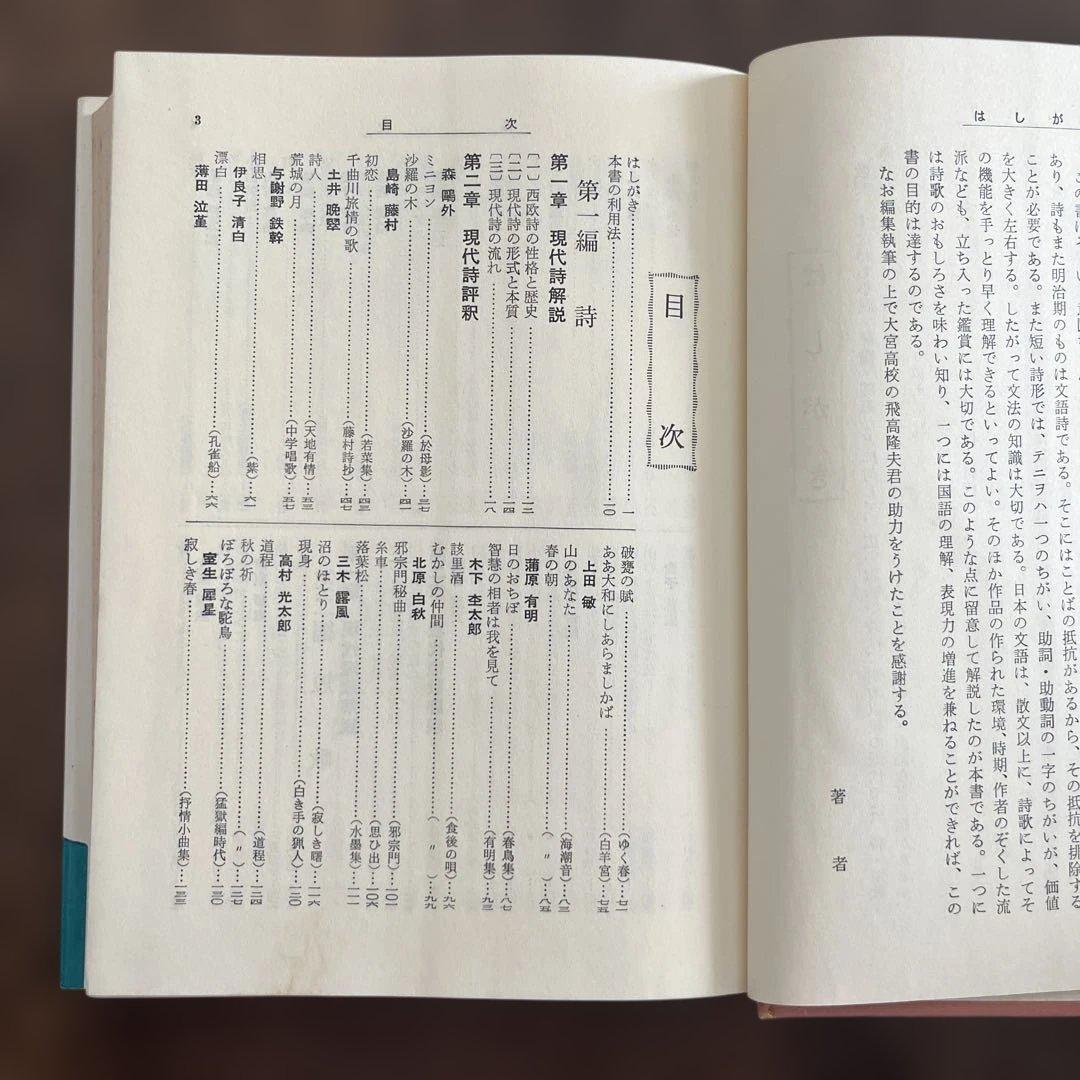 はしが
あり、詩もまた明治期のものは文語詩である。そこにはことばの抵抗があるから、その抵抗を排除する
ことが必要である。また短い詩形では、テニヲハ一つのちがい、助詞・助動詞の一字のちがいが、価値
を大きく左右する。したがって文法の知識は大切である。日本の文語は、散文以上に、詩歌によってそ
の機能を手っとり早く理解できるといってよい。そのほか作品の作られた環境、時期、作者のぞくした流
派なども、立ち入った鑑賞には大切である。このような点に留意して解説したのが本書である。一つに
は詩歌のおもしろさを味わい知り、一つには国語の理解、表現力の増進を兼ねることができれば、この
書の目的は達するのである。
なお編集執筆の上で大宮高校の飛高隆夫君の助力をうけたことを感謝する。
著者
目次
3
目次
はしがき……一
本書の利用法……一〇
第一編 詩
第一章 現代詩解説
〔一〕西欧詩の性格と歴史……一二
〔二〕現代詩の形式と本質……一四
〔三〕現代詩の流れ……一八
第二章 現代詩評釈
森 鷗外
ミニヨン……(於母影)…三七
沙羅の木……(沙羅の木)…四一
島崎 藤村
初恋……(若菜集)…四三
千曲川旅情の歌……(藤村詩抄)…四七
土井 晩翠
詩人……(天地有情)…五三
荒城の月……(中学唱歌)…五七
与謝野 鉄幹
相思……(紫)…六一
伊良子 清白
漂白……(孔雀船)…六六
薄田 泣菫
破甕の賦……(ゆく春)…七一
ああ大和にしあらましかば……(白羊宮)…七五
上田 敏
山のあなた……(海潮音)…八三
春の朝……(〃)…八五
蒲原 有明
日のおちぼ……(春鳥集)…八七
智慧の相者は我を見て……(有明集)…九三
木下 杢太郎
該里酒……(食後の唄)…九六
むかしの仲間……(〃)…九九
北原 白秋
邪宗門秘曲……(邪宗門)…一〇一
糸車……(思ひ出)…一〇六
落葉松……(水墨集)…一一一
三木 露風
沼のほとり……(寂しき曙)…一一六
現身……(白き手の猟人)…一二〇
高村 光太郎
道程……(道程)…一二四
秋の祈……(〃)…一二七
ぼろぼろな駝鳥……(猛獣編時代)…一三〇
室生 犀星
寂しき春……(抒情小曲集)…一三三